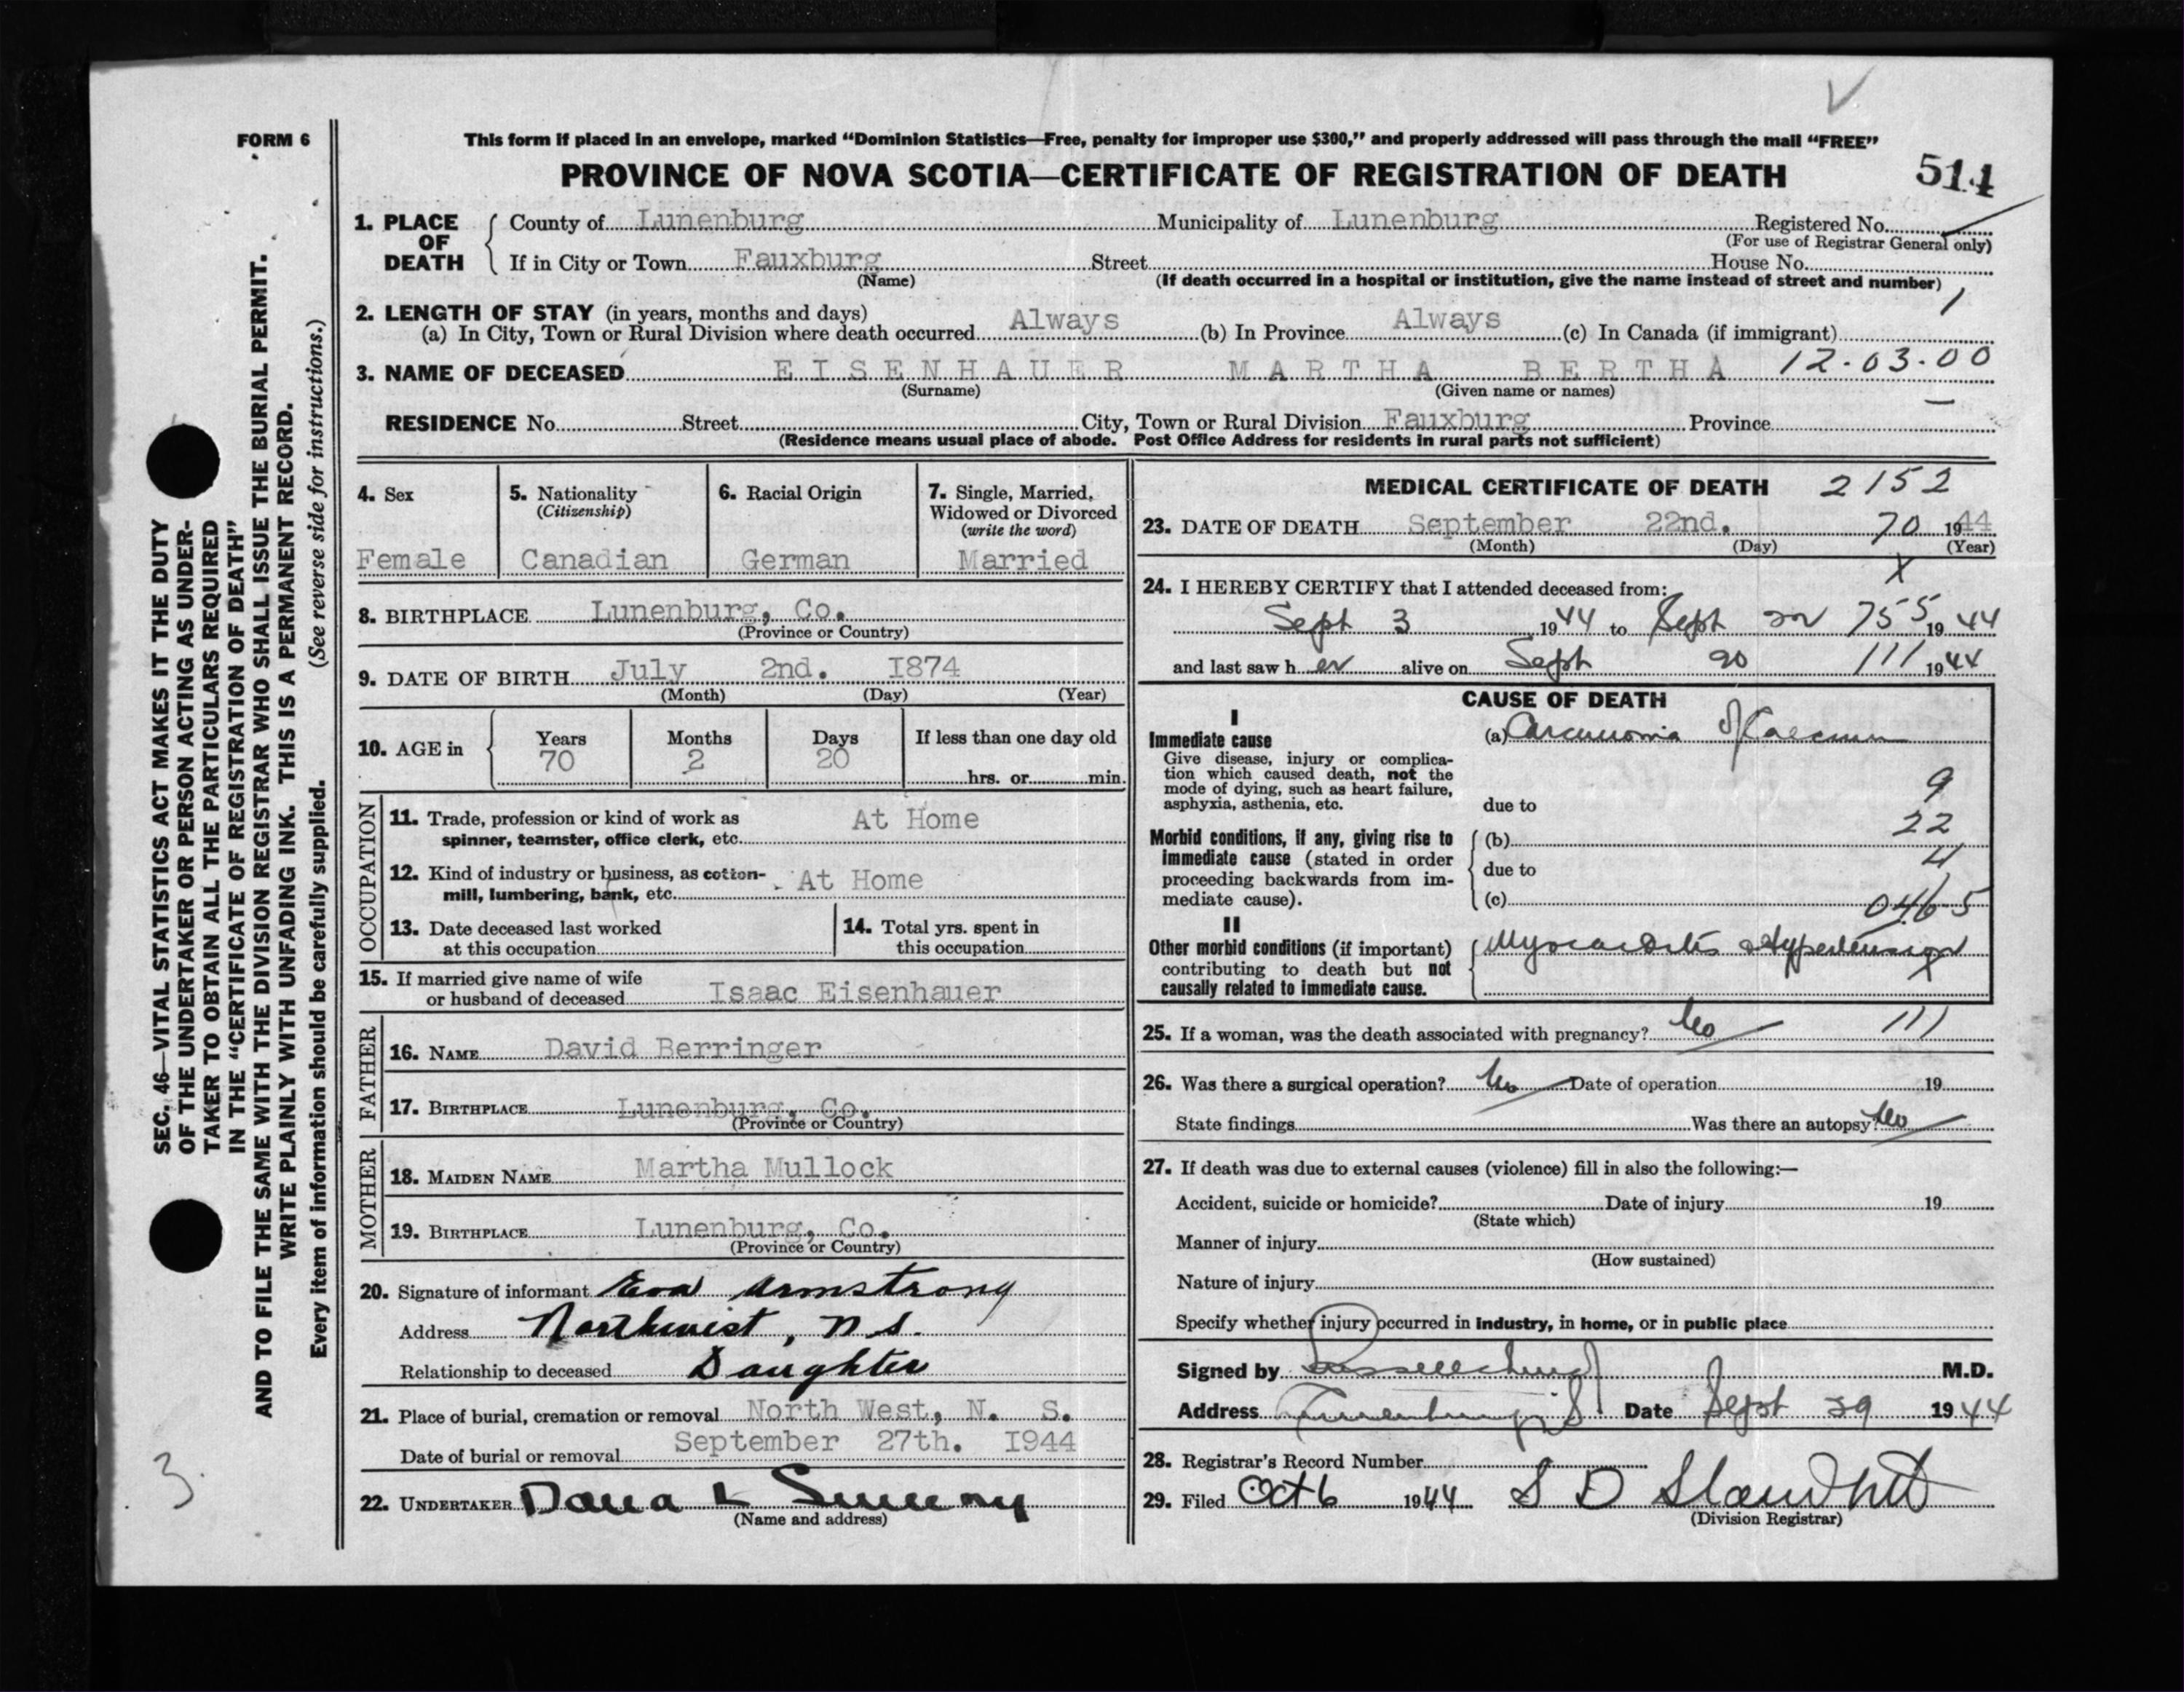 FORM 6
This form if placed in an envelope, marked “Dominion Statistics—Free, penalty for improper use $300,” and properly addressed will pass through the mail “FREE”
PROVINCE OF NOVA SCOTIA—CERTIFICATE OF REGISTRATION OF DEATH 514
1. PLACE OF DEATH
County of Lunenburg Municipality of Lunenburg Registered No.
(For use of Registrar General only)
If in City or Town Fauxburg Street House No.
(Name) (If death occurred in a hospital or institution, give the name instead of street and number)
2. LENGTH OF STAY (in years, months and days) 1
(a) In City, Town or Rural Division where death occurred Always (b) In Province Always (c) In Canada (if immigrant)
3. NAME OF DECEASED EISENHAUER MARTHA BERTHA 12-03-00
(Surname) (Given name or names)
RESIDENCE No. Street City, Town or Rural Division Fauxburg Province
(Residence means usual place of abode. Post Office Address for residents in rural parts not sufficient)
SEC. 46—VITAL STATISTICS ACT MAKES IT THE DUTY
OF THE UNDERTAKER OR PERSON ACTING AS UNDER-
TAKER TO OBTAIN ALL THE PARTICULARS REQUIRED
IN THE “CERTIFICATE OF REGISTRATION OF DEATH”
AND TO FILE THE SAME WITH THE DIVISION REGISTRAR WHO SHALL ISSUE THE BURIAL PERMIT.
WRITE PLAINLY WITH UNFADING INK. THIS IS A PERMANENT RECORD.
Every item of information should be carefully supplied. (See reverse side for instructions.)
3.
4. Sex
Female
5. Nationality
(Citizenship)
Canadian
6. Racial Origin
German
7. Single, Married,
Widowed or Divorced
(write the word)
Married
8. BIRTHPLACE Lunenburg, Co.
(Province or Country)
9. DATE OF BIRTH July 2nd. 1874
(Month) (Day) (Year)
10. AGE in
Years Months Days If less than one day old
70 2 20
hrs. or min.
OCCUPATION
11. Trade, profession or kind of work as
spinner, teamster, office clerk, etc. At Home
12. Kind of industry or business, as cotton-
mill, lumbering, bank, etc. At Home
13. Date deceased last worked
at this occupation
14. Total yrs. spent in
this occupation
15. If married give name of wife
or husband of deceased Isaac Eisenhauer
FATHER
16. NAME David Berringer
17. BIRTHPLACE Lunenburg, Co.
(Province or Country)
MOTHER
18. MAIDEN NAME Martha Mullock
19. BIRTHPLACE Lunenburg, Co.
(Province or Country)
20. Signature of informant Eva Armstrong
Address Northwist, N.S.
Relationship to deceased Daughter
21. Place of burial, cremation or removal North West, N. S.
Date of burial or removal September 27th. 1944
22. UNDERTAKER Dana L Sweeny
(Name and address)
MEDICAL CERTIFICATE OF DEATH 2152
23. DATE OF DEATH September 22nd. 70 1944
(Month) (Day) (Year)
X
24. I HEREBY CERTIFY that I attended deceased from:
Sept 3 1944 to Sept 755 1944
and last saw her alive on Sept 20 111 1944
CAUSE OF DEATH
I
Immediate cause
Give disease, injury or complica-
tion which caused death, not the
mode of dying, such as heart failure,
asphyxia, asthenia, etc.
(a) Carcinoma of Caecum
9
due to
22
Morbid conditions, if any, giving rise to
immediate cause (stated in order
proceeding backwards from im-
mediate cause).
(b)
4
due to
(c) 0465
II
Other morbid conditions (if important)
contributing to death but not
causally related to immediate cause.
Myocarditis & Hypertension
X
25. If a woman, was the death associated with pregnancy? No 111
26. Was there a surgical operation? No Date of operation 19
State findings Was there an autopsy? No
27. If death was due to external causes (violence) fill in also the following:—
Accident, suicide or homicide? Date of injury 19
(State which)
Manner of injury
(How sustained)
Nature of injury
Specify whether injury occurred in industry, in home, or in public place
Signed by M.D.
Address Lunenburg N.S. Date Sept 29 1944
28. Registrar’s Record Number
29. Filed Oct 6 1944 S D
(Division Registrar)